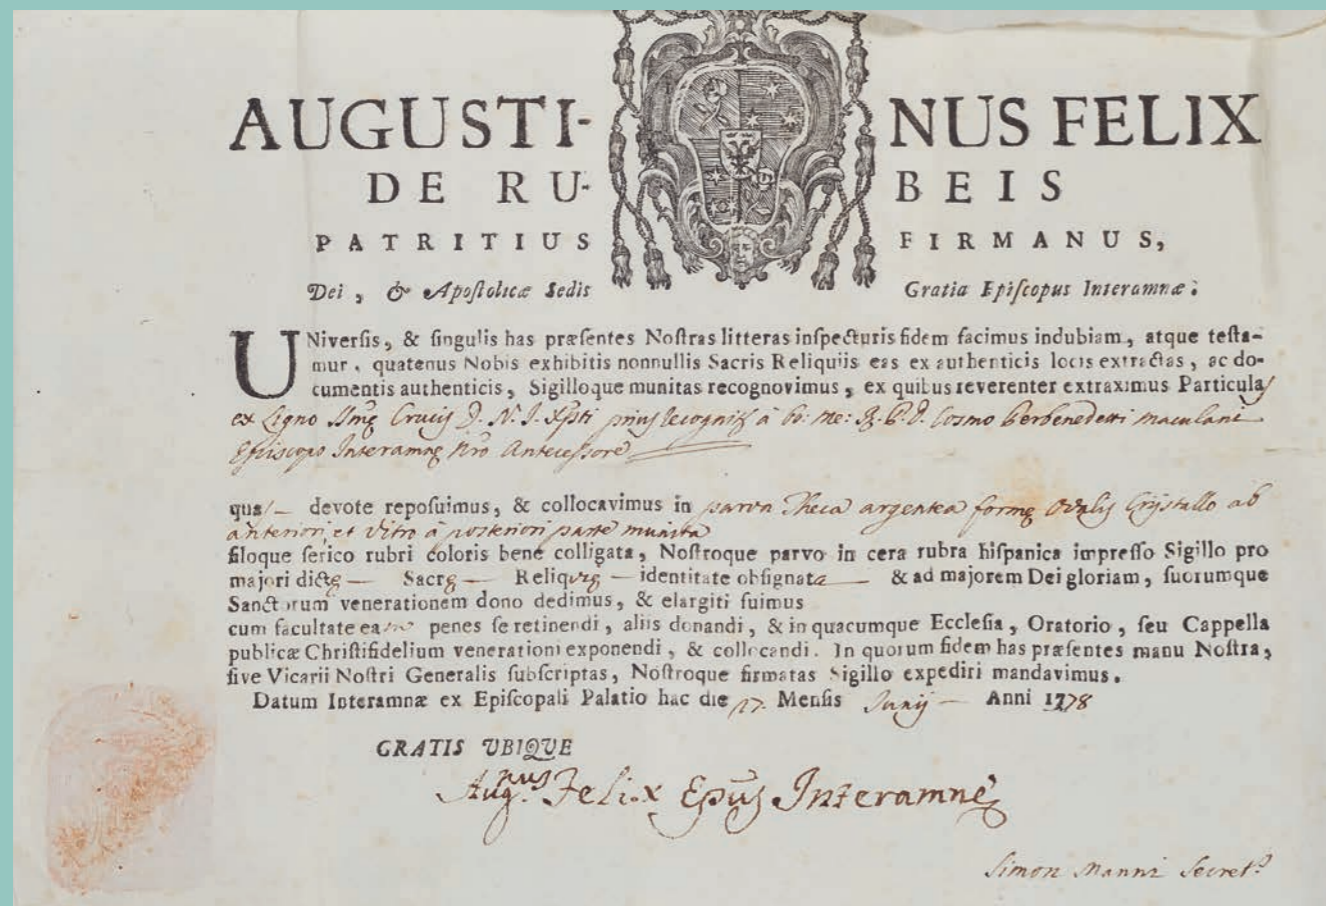 AUGUSTI- NUS FELIX
DE RU- BEIS
PATRITIUS FIRMANUS,
Dei, & Apoſtolicæ Sedis Gratia Epiſcopus Interamnæ.
UNiverſis, & ſingulis has præſentes Noſtras litteras inſpecturis fidem facimus indubiam, atque teſta-
mur, quatenus Nobis exhibitis nonnullis Sacris Reliquiis eas ex authenticis locis extractas, ac do-
cumentis authenticis, Sigilloque munitas recognovimus, ex quibus reverenter extraximus Particulas
ex Ligno Smę Crucis D. N. J. Xpsti prius recognitę à bo: me: R. P. D. Cosmo Berbenedetti Maculani
Episcopo Interamnę Nro Antecessore
quas — devote repoſuimus, & collocavimus in parva Theca argentea formę Ovalis Crystallo ab
anteriori, et Vitro à posteriori parte munita
filoque ſerico rubri coloris bene colligata, Noſtroque parvo in cera rubra hiſpanica impreſſo Sigillo pro
majori dictę — Sacrę — Reliquię — identitate obſignata — & ad majorem Dei gloriam, ſuorumque
Sanctorum venerationem dono dedimus, & elargiti fuimus
cum facultate eas penes ſe retinendi, aliis donandi, & in quacumque Eccleſia, Oratorio, ſeu Cappella
publicæ Chriſtifidelium venerationi exponendi, & collocandi. In quorum fidem has præſentes manu Noſtra,
ſive Vicarii Noſtri Generalis ſubſcriptas, Noſtroque firmatas Sigillo expediri mandavimus.
Datum Interamnæ ex Epiſcopali Palatio hac die 17. Menſis Junij — Anni 1778
GRATIS UBIQUE
Aug.nus Felix Epus Interamnę
Simon Manni Secret.o